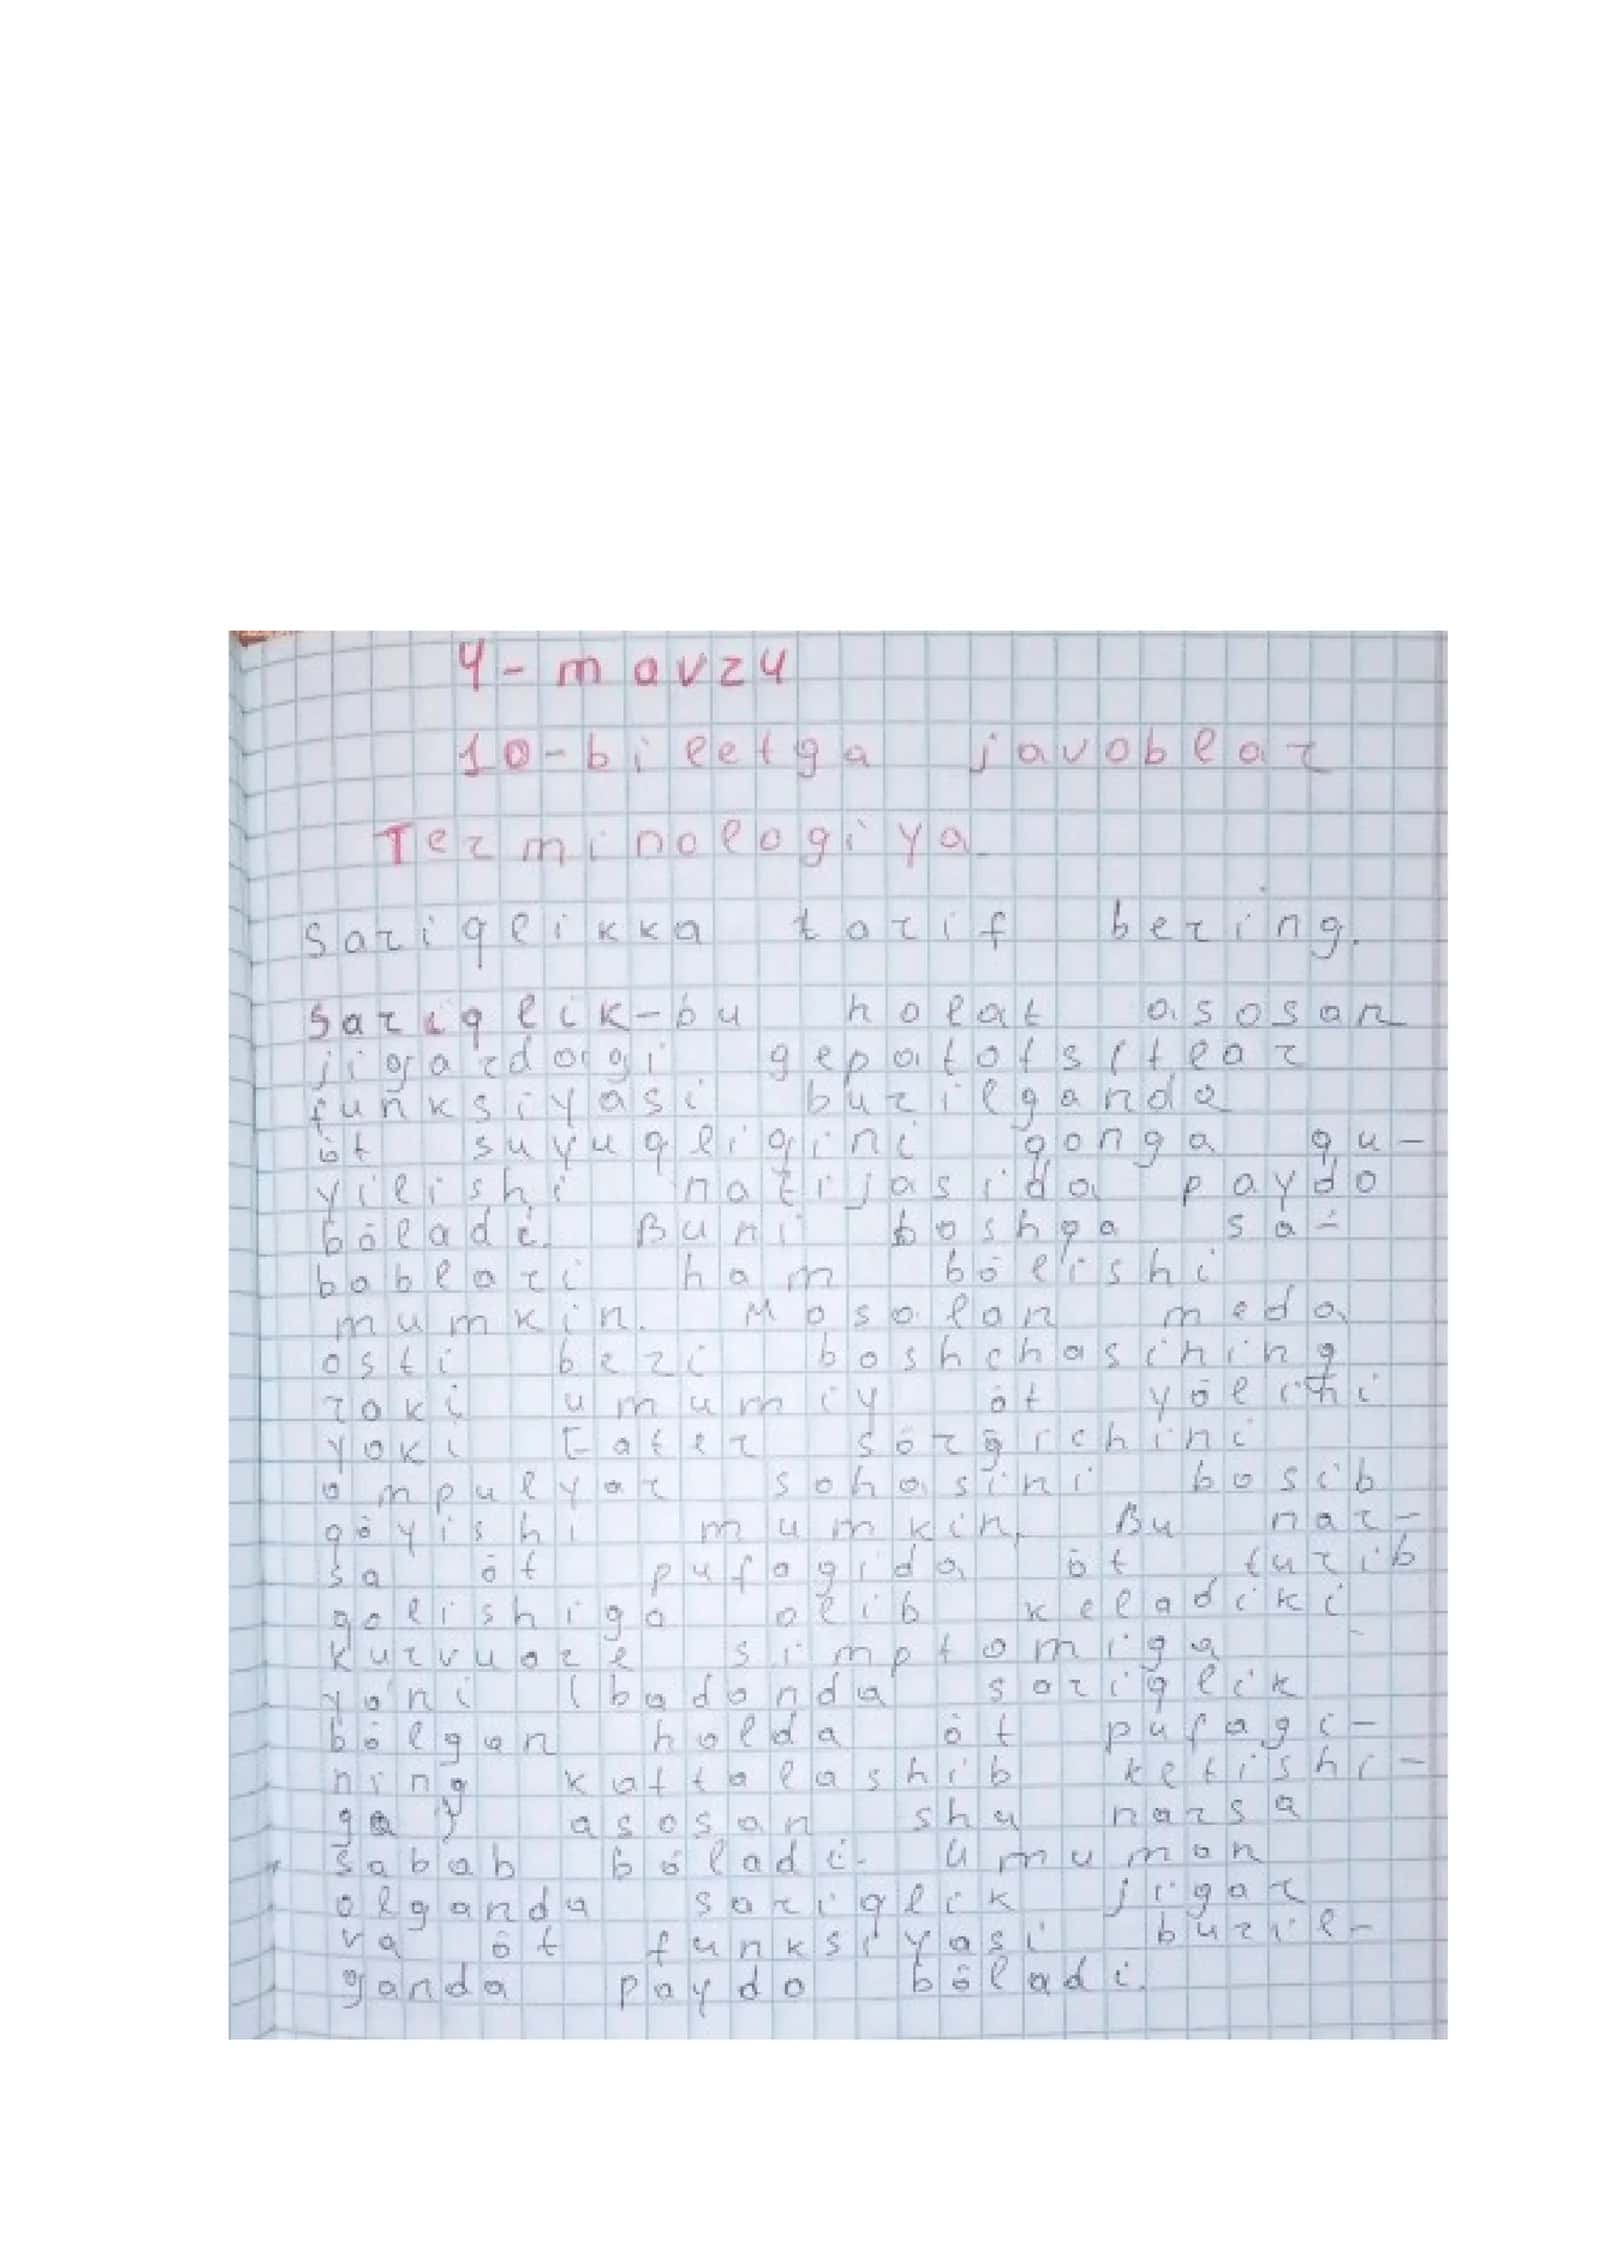 4-mavzu
10-biletga javoblar
Terminologiya.
Sariqlikka tarif bering.
Sariqlik-bu holat asosan
jigardagi gepatotsitlar
funksiyasi buzilganda
öt suyuqligini qonga qu-
yilishi natijasida paydo
böladi. Buni boshqa sa-
bablari ham bölishi
mumkin. Masalan meda
osti bezi boshchasining
raki umumiy öt yölini
yoki Fater sörg'ichini
ampulyar sohasini bosib
qöyishi mumkin. Bu nar-
sa öt pufagida öt turib
qolishiga olib keladiki
Kurvuaze simptomiga
ya'ni (badanda sariqlik
bölgan holda öt pufagi-
ning kattalashib ketishi-
ga) asosan shu narsa
sabab böladi. Umuman
olganda sariqlik jigar
va öt funksiyasi buzil-
ganda paydo böladi.